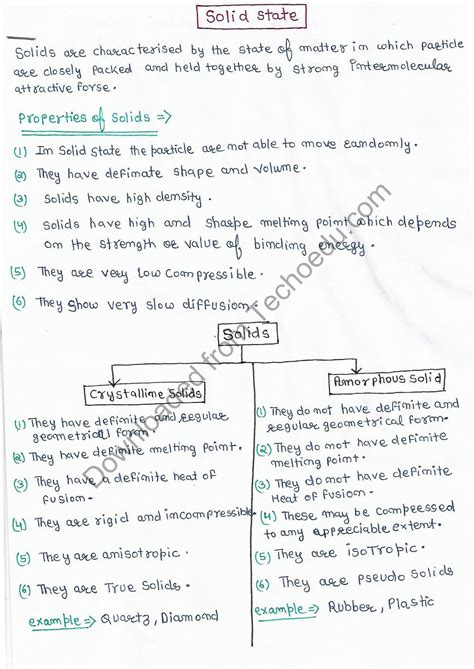 Solid state
Solids are characterised by the state of matter in which particle
are closely packed and held together by strong Intermolecular
attractive forse.
Properties of Solids =>
(1) In Solid state the particle are not able to move randomly.
(2) They have definate shape and volume.
(3) Solids have high density.
(4) Solids have high and Sharpe melting point which depends
on the strength or value of binding energy.
(5) They are very low compressible.
(6) They show very slow diffusion.
Solids
Crystalline Solids
(1) They have definite and regular
geometrical form.
(2) They have definite melting Point.
(3) They have a definite heat of
fusion.
(4) They are rigid and incompressible.
(5) They are anisotropic.
(6) They are True Solids.
example => Quartz, Diamond
Amorphous Solid
(1) They do not have definite and
regular geometrical form.
(2) They do not have definite
melting Point.
(3) They do not have definite
Heat of Fusion.
(4) These may be compressed
to any appreciable extent.
(5) They are isoTropic.
(6) They are pseudo Solids
example => Rubber, Plastic
Downloaded from Techoedu.com